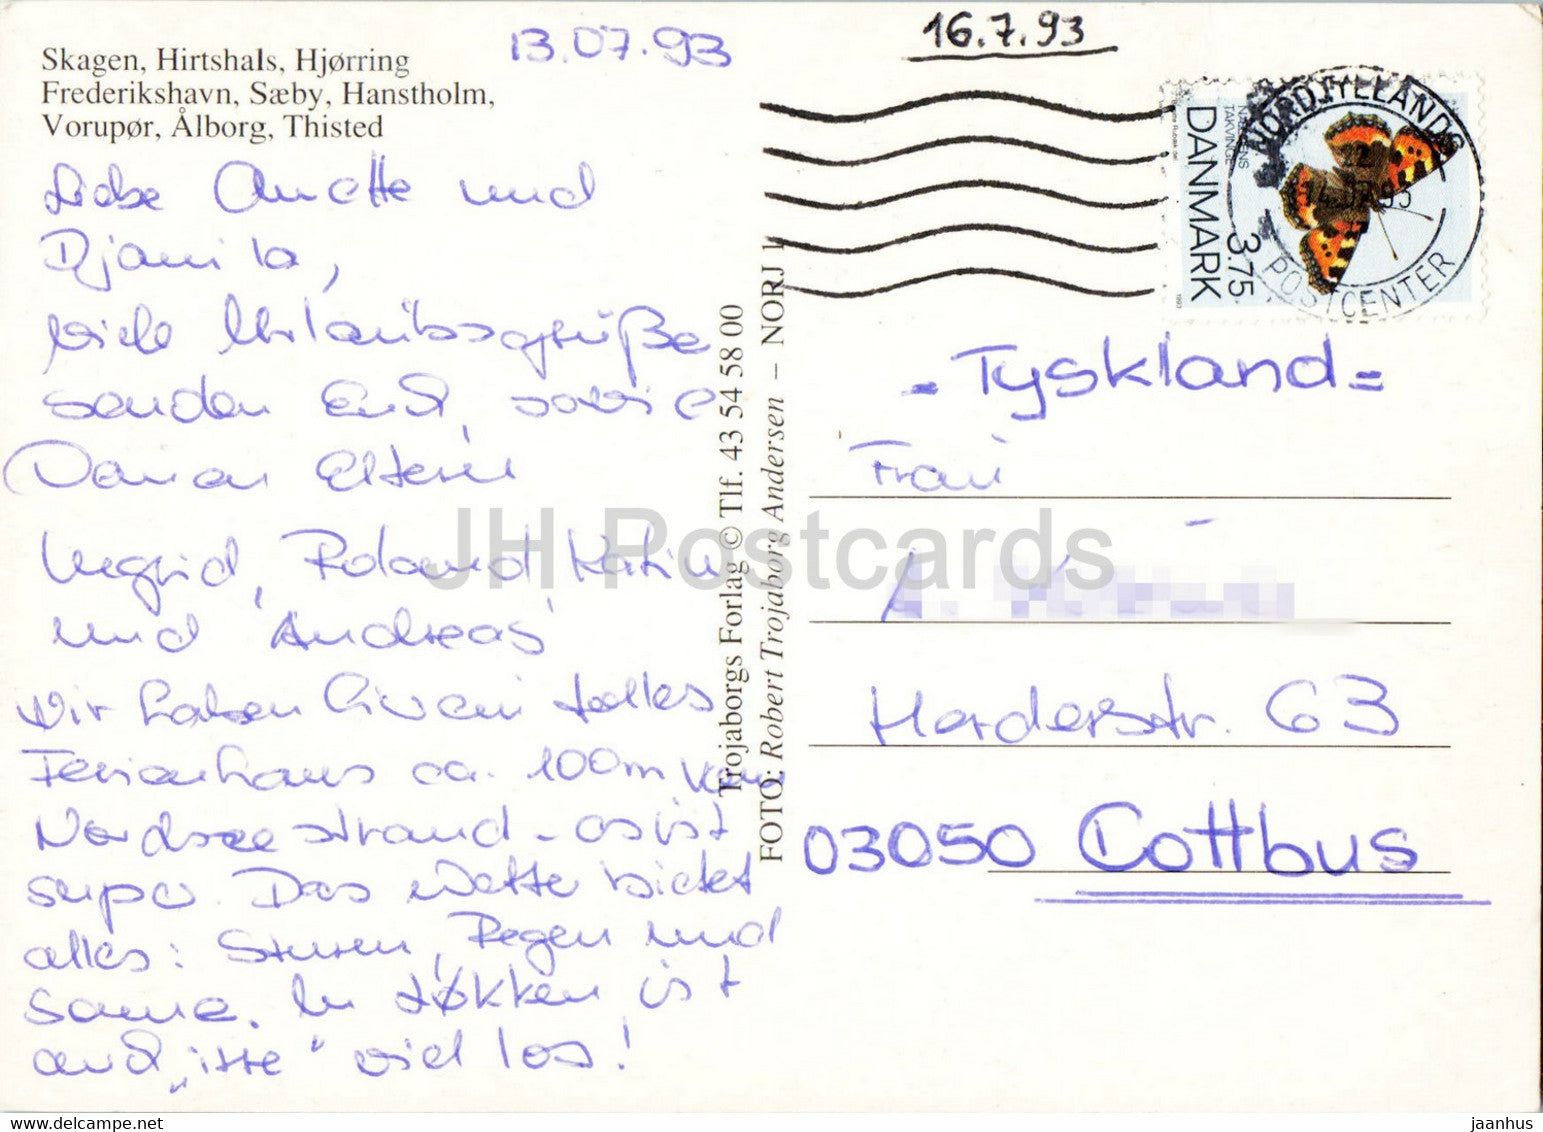 Skagen, Hirtshals, Hjørring
Frederikshavn, Sæby, Hanstholm,
Vorupør, Ålborg, Thisted
13.07.93
16.7.93
Liebe Anette und
Djamila,
viele Urlaubsgrüße
senden Euch, sowie
Deinen Eltern
Ingrid, Roland Katin
und Andreas
Wir haben hier ein tolles
Ferienhaus ca. 100m vom
Nordseestrand - es ist
super. Das Wetter bietet
alles: Sturm, Regen und
Sonne. In Løkken ist
auch „irre“ viel los!
Trojaborgs Forlag © Tlf. 43 54 58 00
FOTO: Robert Trojaborg Andersen – NORJ 1
NORDJYLLANDS
POSTCENTER
14.07.93
NÆLDENS
TAKVINGE
DANMARK
3.75
1993
= Tyskland =
Frau
A.
Harderstr. 63
03050 Cottbus
JH Postcards
delcampe.net
jaanhus